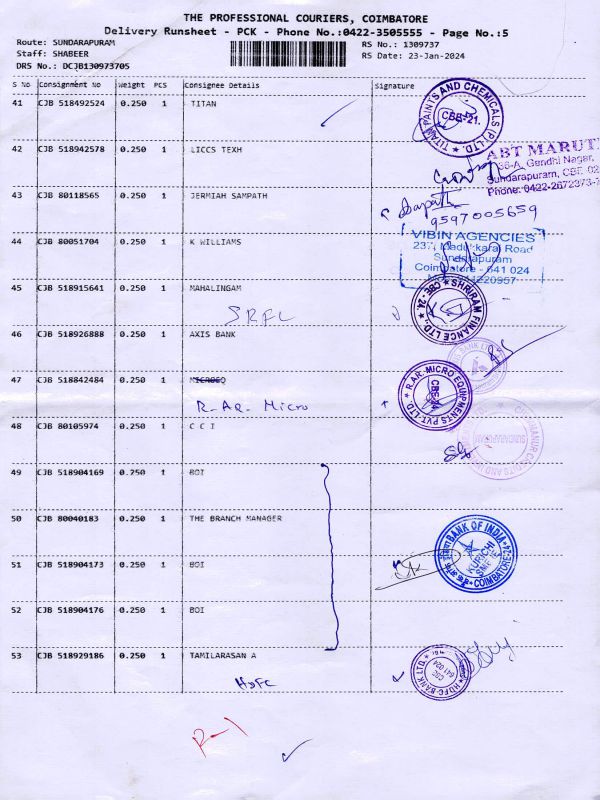 THE PROFESSIONAL COURIERS, COIMBATORE
Delivery Runsheet - PCK - Phone No.:0422-3505555 - Page No.:5
Route: SUNDARAPURAM
RS No.: 1309737
Staff: SHABEER
RS Date: 23-Jan-2024
DRS No.: DCJB130973705
S No Consignment No Weight PCS Consignee Details Signature
41 CJB 518492524 0.250 1 TITAN
TITAN PAINTS AND CHEMICALS (P) LTD.
CBE-21.
42 CJB 518942578 0.250 1 LICCS TEXH
ABT MARUTI
Gandhi Nagar,
Sundarapuram, CBE
Phone: 0422-2672373
43 CJB 80118565 0.250 1 JERMIAH SAMPATH
Sampath
9597005659
44 CJB 80051704 0.250 1 K WILLIAMS
VIBIN AGENCIES
Road
Sundarapuram
Coimbatore - 641 024
45 CJB 518915641 0.250 1 MAHALINGAM
SRFL
SHRIRAM FINANCE LTD.,
CBE - 24
46 CJB 518926888 0.250 1 AXIS BANK
47 CJB 518842484 0.250 1 MICROSQ
R.AR. Micro
R.AR. MICRO EQUIPMENTS PVT LTD.
CBE-24
48 CJB 80105974 0.250 1 C C I
SUNDARAPURAM
49 CJB 518904169 0.250 1 BOI
50 CJB 80040183 0.250 1 THE BRANCH MANAGER
BANK OF INDIA
KURICHI
COIMBATORE-24
51 CJB 518904173 0.250 1 BOI
52 CJB 518904176 0.250 1 BOI
53 CJB 518929186 0.250 1 TAMILARASAN A
HDFC
HDFC BANK LTD.
CBE
641 024
R-1